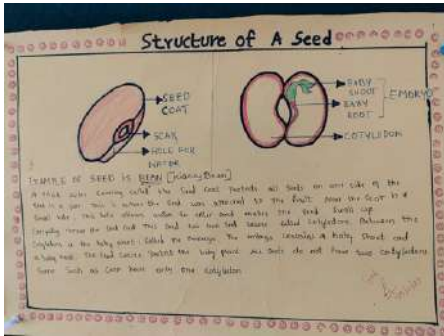 Structure of A Seed
SEED
COAT
SCAR
HOLE FOR
WATER
BABY
SHOOT
BABY
ROOT
EMBRYO
COTYLEDON
EXAMPLE OF SEED is BEAN [Kidney Bean]
A thick outer covering called the Seed Coat Protects all Seeds on one side of the
Seed is a scar. This is where the Seed was attached to the fruit. Near the Scar is a
Small hole. This hole allows water to enter and makes the Seed Swell up
the Seed Coat This Seed has two Seed leaves called Cotyledons. Between the
Cotyledons is the baby plant Called the The embryo consists of Baby Shoot and
a baby root. The Seed the baby plant All Seeds do not have two Cotyledons
Some Such as have only one Cotyledon